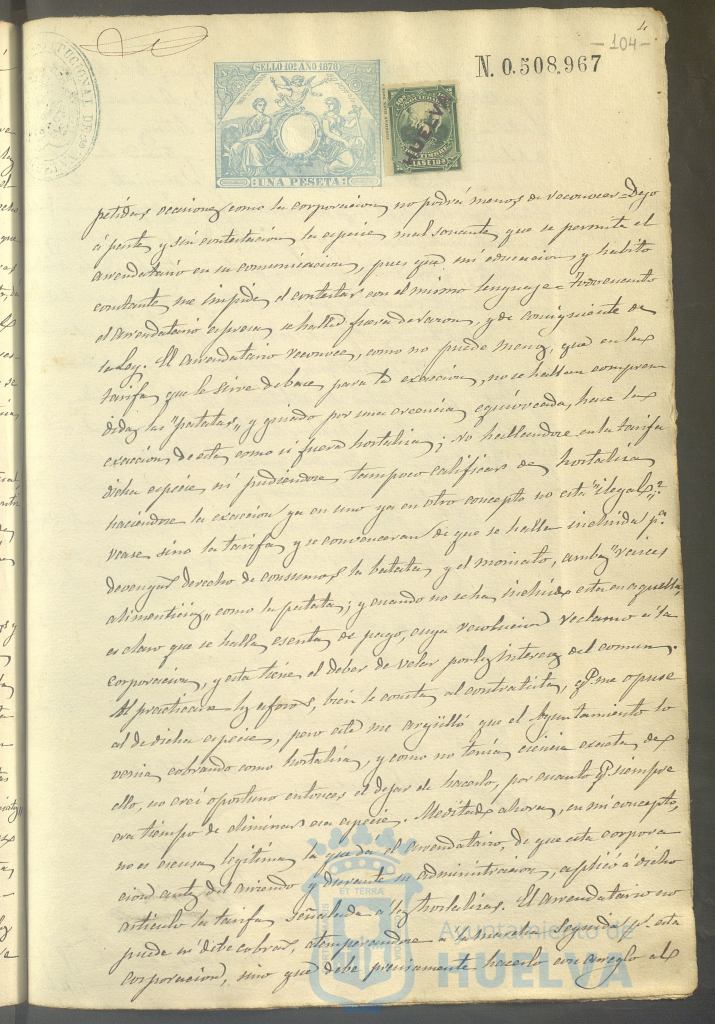 4
-104-
SELLO 10º AÑO 1878
UNA PESETA
N. 0.508.967
HUELVA
petidas occiones, como la corporacion no podrá menos de reconocer. Dejo
á parte, y sin contestacion, la especie mal sonante, que se permite el
arrendatario en su comunicacion, pues que mi educacion y habito
constante me impide el contestar con el mismo lenguaje.
el arrendatario espresa, se halla fuera de razon, y de consiguiente de
la Ley. El Arrendatario reconoce, como no puede menos, que en la
tarifa que le sirve de base para la exaccion, no se hallan compren
didas las "patatas", y guiado por una creencia equivocada, hace la
exaccion de esta como si fuera hortaliza; no hallandose en la tarifa
dicha especie ni pudiendose tampoco calificar de hortaliza
haciendose la exaccion ya en uno ya en otro concepto no está "ilegal"?
vease sino la tarifa y se convenceran de que se halla incluida pª
devengar derecho de consumos la batata y el moniato, ambas "raices
alimenticias" como la patata; y cuando no se ha incluido esta en aquella,
es claro que se halla esenta de pago, cuya resolucion reclamo á la
corporacion, y esta tiene el deber de velar por los intereses del comun.
Al practicarse los aforos, bien le consta al contratista, q.e me opuse
al de dicha especie, pero este me argülló que el Ayuntamiento lo
venia cobrando como hortaliza, y como no tenia ciencia exacta de
ello, no creí oportuno entonces el dejar de hacerlo, por cuanto q.e siempre
era tiempo de eliminar esa especie. Meditado ahora, en mi concepto,
no es escusa legitima la que da el arrendatario, de que esta corpora
cion antes del arriendo y durante su administracion, aplicó á dicho
articulo la tarifa señalada á las hortalizas. El arrendatario no
puede ni debe cobrar, atemperandose á la marcha seguida p.r esta
corporacion, sino que debe precisamente hacerlo con arreglo al
Ayuntamiento de
HUELVA